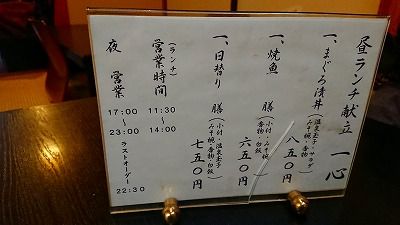 昼ランチ献立 一心
一、まぐろ漬丼(温泉玉子・サラダ
みそ椀・香物)
八五〇円
一、焼魚 膳(小付・みそ椀
香物・白飯)
六五〇円
一、日替り 膳(小付・温泉玉子
みそ椀・香物・白飯)
七五〇円
(ランチ)
営業時間 11:30~14:00
夜 営業 17:00~23:00 ラストオーダー 22:30